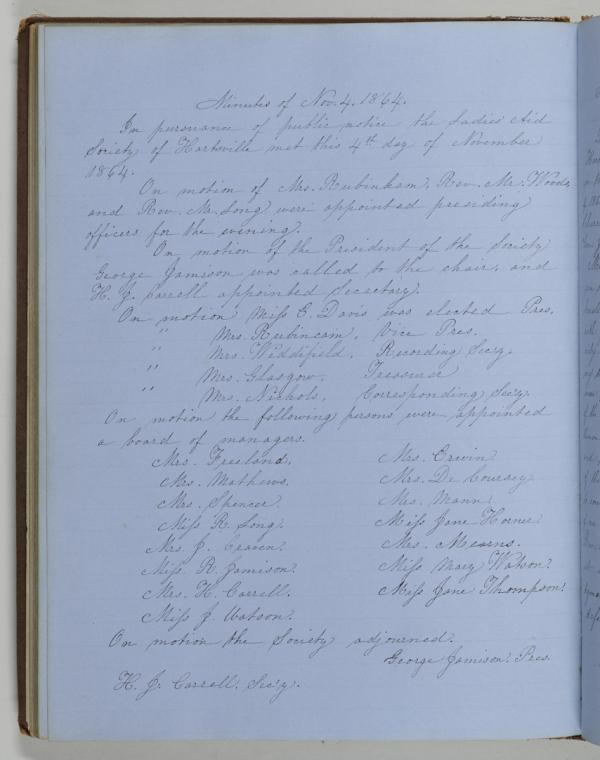 Minutes of Nov. 4. 1864.
In pursuance of public notice the Ladies Aid
Society of Hartsville met this 4th day of November
1864.
On motion of Mrs. Rubinkam, Rev. Mr. Woods,
and Rev. Mr. Long were appointed presiding
officers for the evening.
On motion of the President of the Society
George Jamison was called to the chair, and
H. J. Carrell appointed Secretary.
On motion Miss E. Davis was elected Pres.
" Mrs. Rubincam, Vice Pres.
" Mrs. Widdifield, Recording Secy.
" Mrs. Glasgow, Treasurer
" Mrs. Nichols, Corresponding Secy.
On motion the following persons were appointed
a board of managers.
Mrs. Freeland, Mrs. Erwin
Mrs. Mathews. Mrs. De Coursey
Mrs. Spencer. Mrs. Mann.
Miss R. Long. Miss Jane Horner.
Mrs. J. Craven. Mrs. Mearns.
Miss. R. Jamison. Miss Mary Watson.
Mrs. H. Carrell. Miss Jane Thompson.
Miss J. Watson.
On motion the Society adjourned.
George Jamison. Pres.
H. J. Carrell. Sec'y.